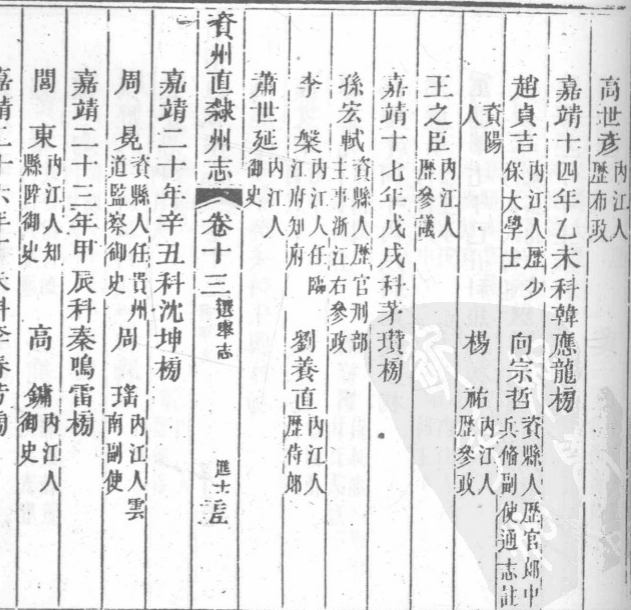 高世彥 內江人歷布政
嘉靖十四年乙未科韓應龍榜
趙貞吉 內江人歷少保大學士 向宗哲 資縣人歷官郎中兵備副使通志註
資陽人 楊祐 內江人歷參政
王之臣 內江人歷參議
嘉靖十七年戊戌科茅瓚榜
孫宏軾 資縣人歷官刑部主事浙江右參政
李槃 內江人任臨江府知府 劉養直 內江人歷侍郎
蕭世延 內江人御史
資州直隸州志 卷十三 選舉志 進士
嘉靖二十年辛丑科沈坤榜
周冕 資縣人任貴州道監察御史 周瑤 內江人雲南副使
嘉靖二十三年甲辰科秦鳴雷榜
閻東 內江人知縣陞御史 高鏽 內江人御史
嘉靖二十六年 未科李春芳榜